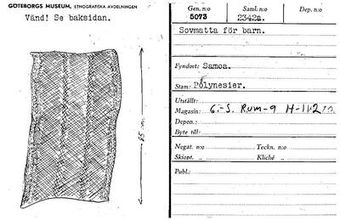 GÖTEBORGS MUSEUM, ETNOGRAFISKA AVDELNINGEN
Vänd! Se baksidan.
85 cm.
Gen. n:o Saml. n:o Dep. n:o
5073 2342a.
Sovmatta för barn.
Fyndort: Samoa.
Stam: Polynesier.
Utställt:
Magasin: 6.-S. Rum-9 H-1
Depon.:
Byte till:
Negat. n:o Teckn. n:o
Skiopt. „ Kliché „
Publ.: